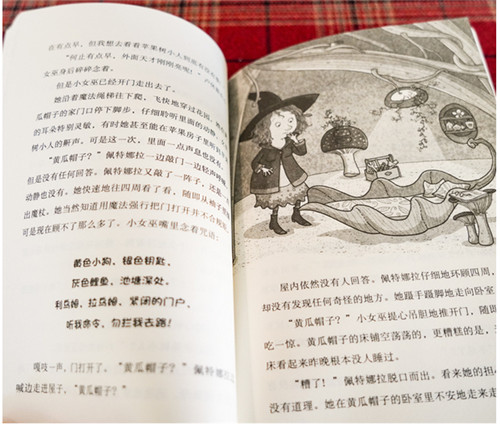 在有点早，但我想去看看苹果树小人到底有没有
“何止有点早，外面天才刚刚亮呢！”
女巫身后碎碎念着。
但是小女巫已经开门走出去了。
她沿着魔法绳梯往下爬，飞快地穿过花园，
瓜帽子的家门口停下脚步，仔细聆听里面的动静
的耳朵特别灵敏，有时她甚至能在苹果房子里听到
树小人的鼾声。可是这一次，里面一点声息也没有
“黄瓜帽子？”佩特娜拉一边敲门一边轻声呼唤
但是没有任何回答。佩特娜拉又敲了一阵子，还是
动静也没有。她快速地往四周看了看，随即从袖子里
出魔杖。她当然知道用魔法强行把门打开并不合规矩，
可是现在顾不了那么多了。小女巫嘴里念着咒语：
黄色小狗，银色钥匙，
灰色鲤鱼，池塘深处，
利乌姆，拉乌姆，紧闭的门户，
听我命令，勿拦我去路！
嘎吱一声，门打开了。“黄瓜帽子？”佩特娜拉边
喊边走进屋子，“黄瓜帽子？”
屋内依然没有人回答。佩特娜拉仔细地环顾四周，
却没有发现任何奇怪的地方。她蹑手蹑脚地走向卧室
“黄瓜帽子？”小女巫提心吊胆地推开门，随即
吃一惊。黄瓜帽子的床铺空荡荡的，更糟糕的是，
床看起来昨晚根本没人睡过。
“糟了！”佩特娜拉脱口而出。看来她的担
没有道理。她在黄瓜帽子的卧室里不安地走来走